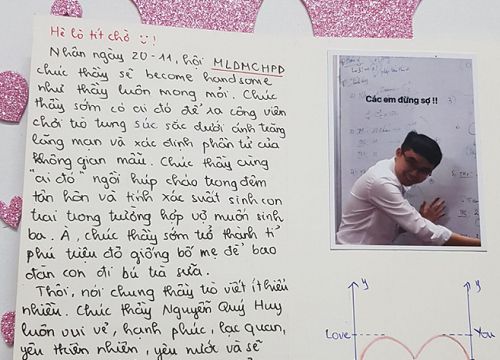 Hê lô tít chờ !
Nhân ngày 20-11, hội MLDMCHPD
chúc thầy sẽ become handsome
như thầy luôn mong mỏi. Chúc
thầy sớm có cái đó để ra công viên
chơi trò tung súc sắc dưới ánh trăng
lãng mạn và xác định phần tử của
không gian mẫu. Chúc thầy cùng
"cái đó" ngồi húp cháo trong đêm
tân hôn và tính xác suất sinh con
trai trong trường hợp vợ muốn sinh
ba. À, chúc thầy sớm trở thành tỉ
phú triệu đô giống bố mẹ để bao
đàn con đi bú trà sữa.
Thôi, nói chung thầy trò viết ít hiểu
nhiều. Chúc thầy Nguyễn Quý Huy
luôn vui vẻ, hạnh phúc, lạc quan,
yêu thiên nhiên, yêu nước và sẽ
Các em đừng sợ !!
y
y
Love
You